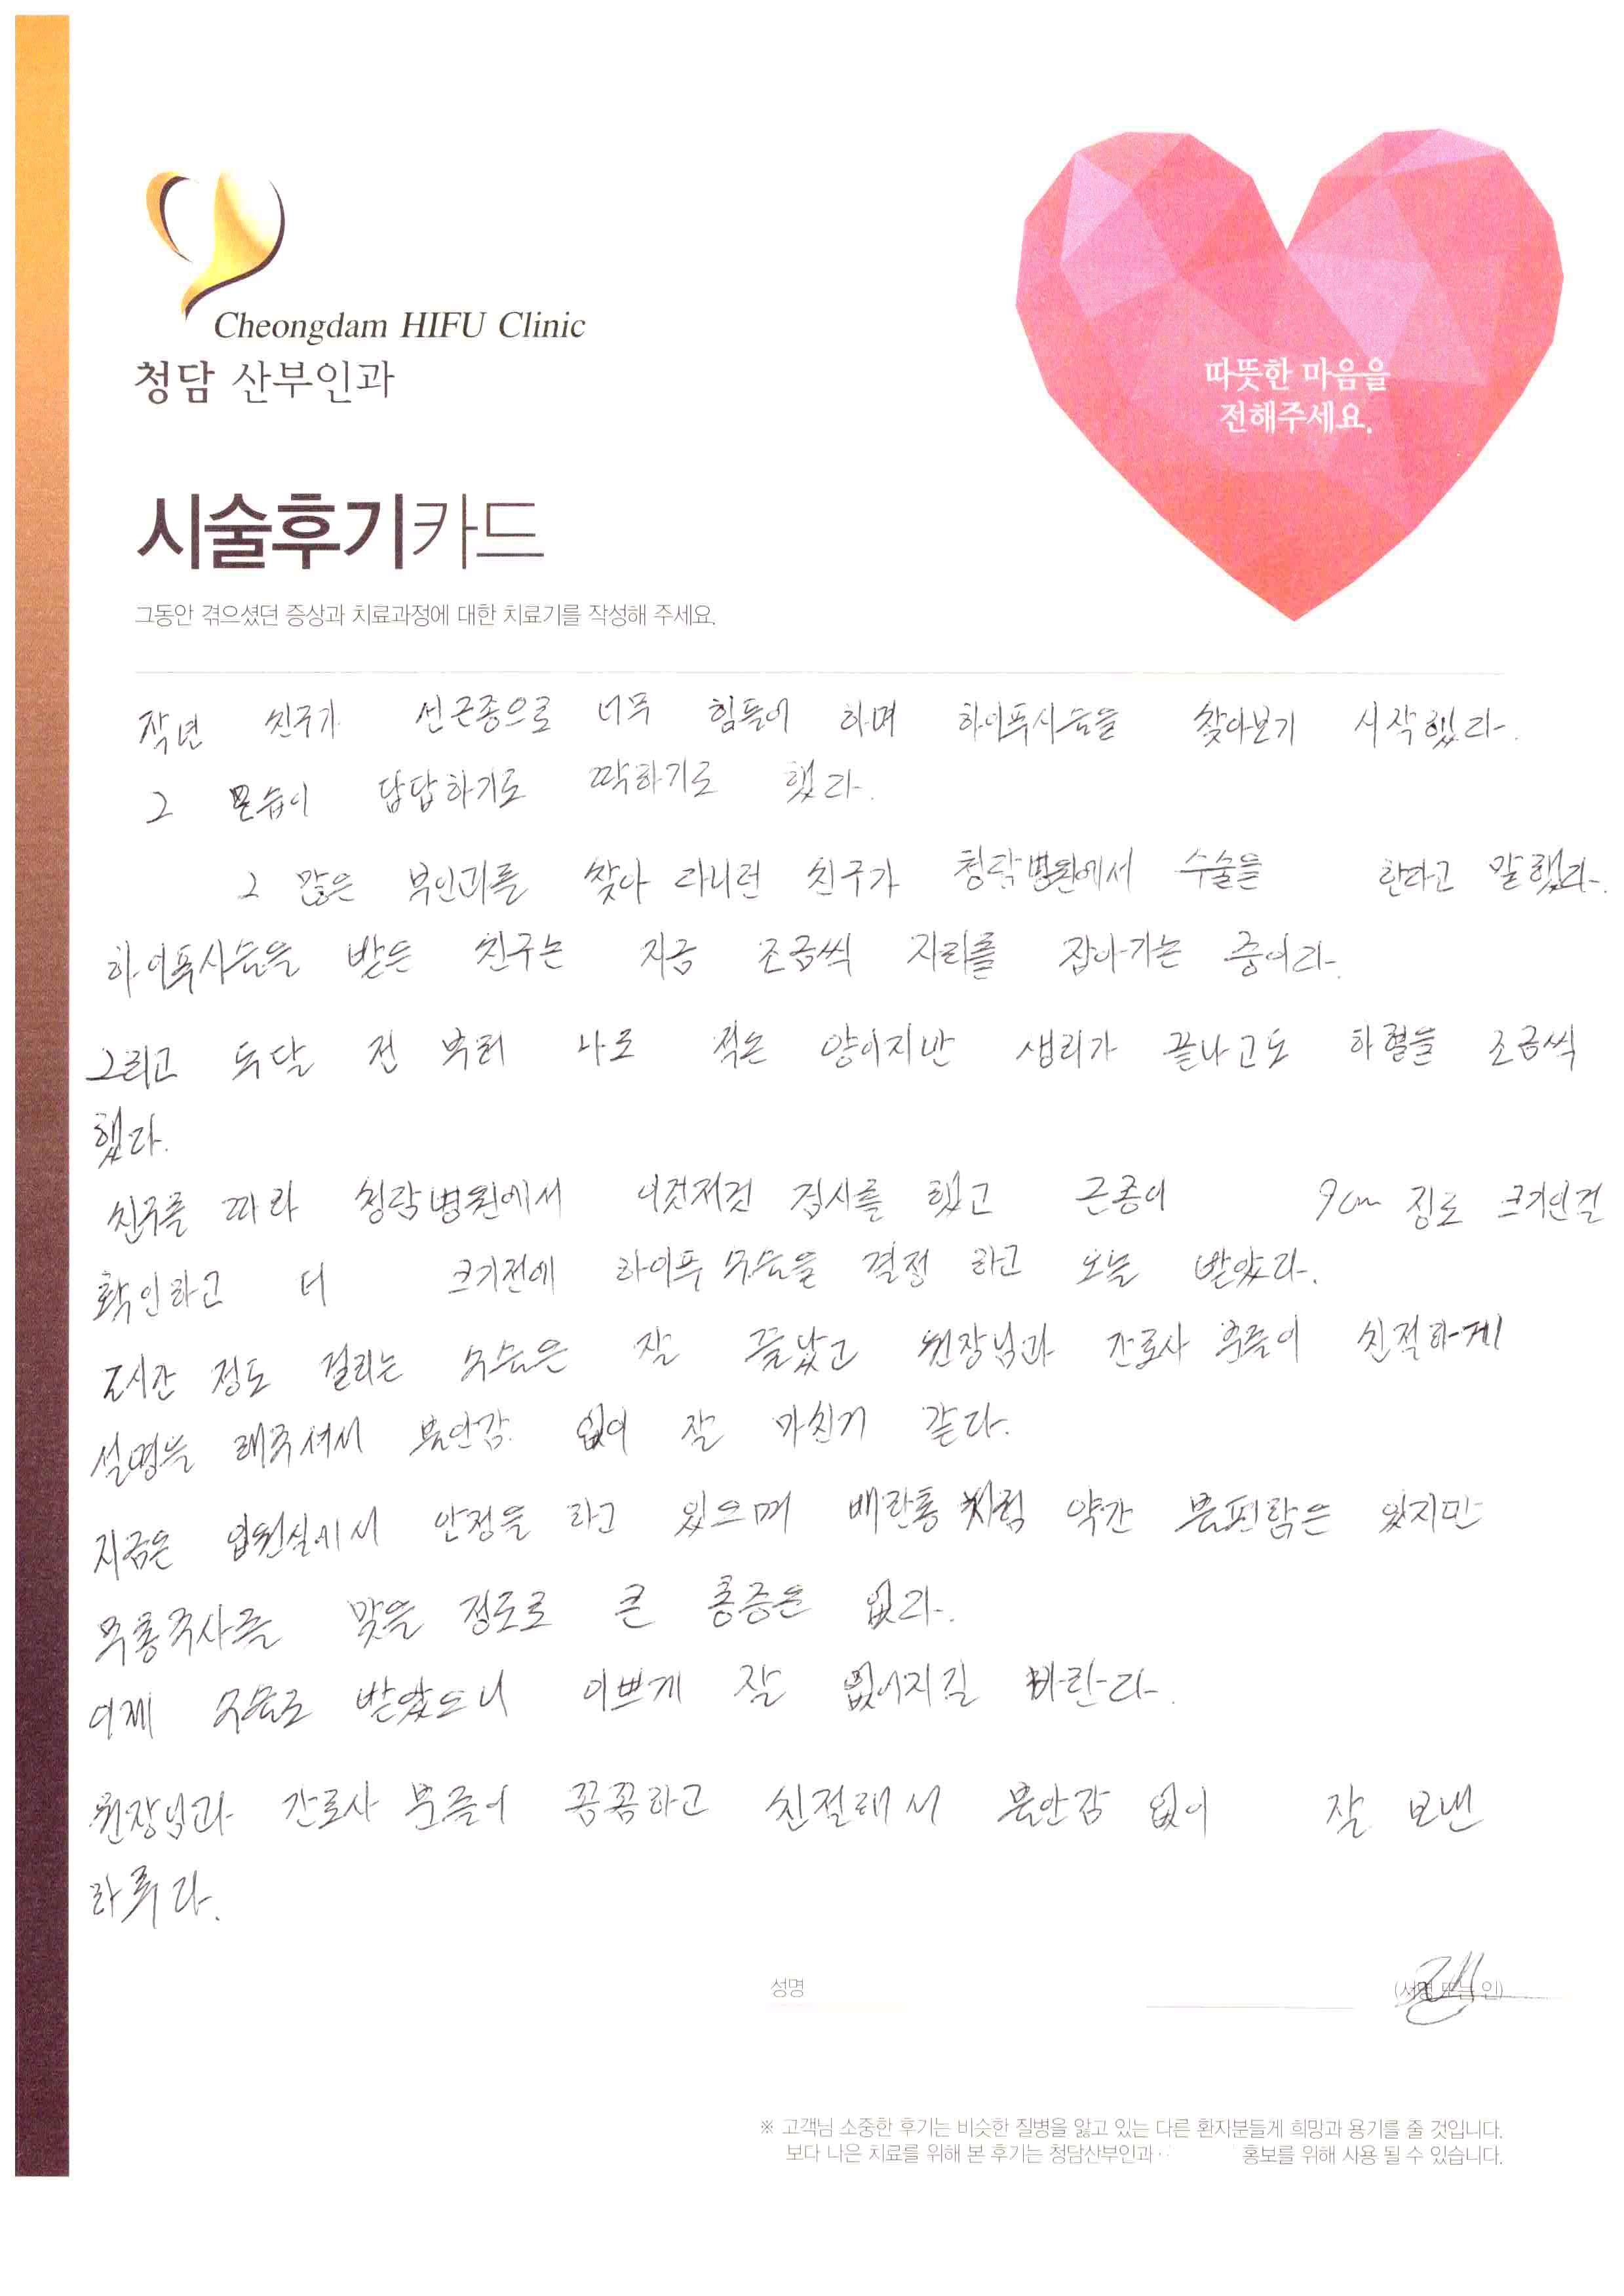 Cheongdam HIFU Clinic
청담 산부인과
따뜻한 마음을
전해주세요.
시술후기카드
그동안 겪으셨던 증상과 치료과정에 대한 치료기를 작성해 주세요.
작년 친구가 선근종으로 너무 힘들어 하며 하이푸시술을 찾아보기 시작했다.
그 모습이 답답하기도 딱하기도 했다.
그 많은 부인과를 찾아 다니던 친구가 청담병원에서 수술을 한다고 말했다.
하이푸시술을 받은 친구는 지금 조금씩 자리를 잡아가는 중이다.
그리고 두달 전 부터 나도 적은 양이지만 생리가 끝나고도 하혈을 조금씩
했다.
친구를 따라 청담병원에서 이것저것 검사를 했고 근종이 9cm 정도 크기인걸
확인하고 더 크기전에 하이푸 수술을 결정 하고 오늘 받았다.
정도 걸리는 수술은 잘 끝났고 원장님과 간호사 분들이 친절하게
설명을 해주셔서 불안감 없이 잘 마친거 같다.
지금은 입원실에서 안정을 하고 있으며 배란통 처럼 약간 불편함은 있지만
무통주사를 맞을 정도로 큰 통증은 없다.
이제 수술도 받았으니 이쁘게 잘 없어지길 바란다.
원장님과 간호사 분들이 꼼꼼하고 친절해서 불안감 없이 잘 보낸
하루다.
성명 (서명 또는 인)
※ 고객님 소중한 후기는 비슷한 질병을 앓고 있는 다른 환자분들게 희망과 용기를 줄 것입니다.
보다 나은 치료를 위해 본 후기는 청담산부인과 홍보를 위해 사용 될 수 있습니다.